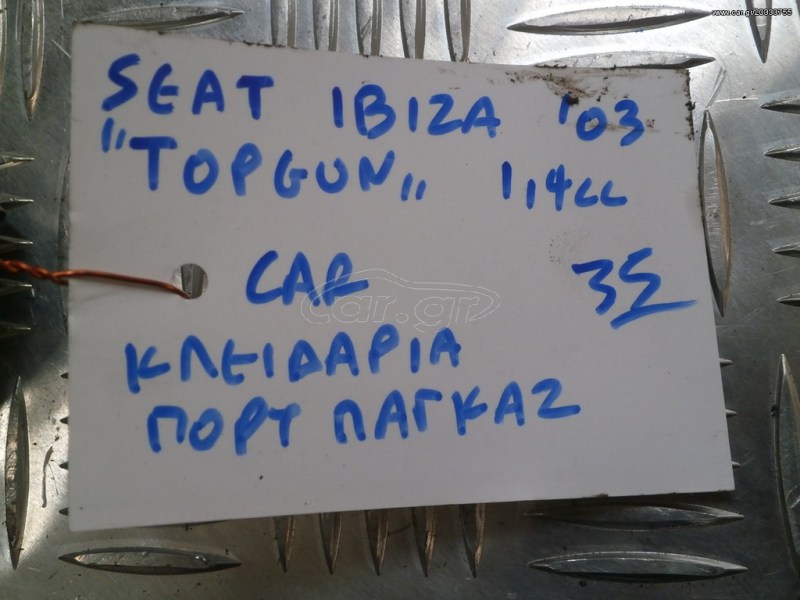 www.car.gr/20333755
SEAT IBIZA '03
"TOPGUN" 1,4cc
CAR 35
car.gr
ΚΛΕΙΔΑΡΙΑ
ΠΟΡΤ ΠΑΓΚΑΖ